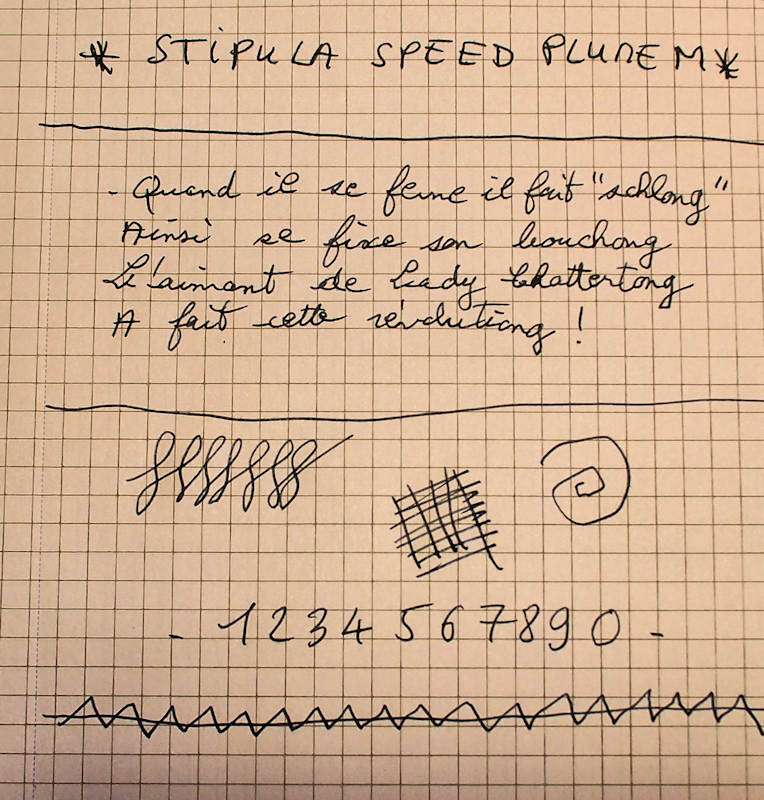 * STIPULA SPEED PLUME M *
- Quand il se ferme il fait "schlong"
Ainsi se fixe son bouchong
L'aimant de Lady Chattertong
A fait cette révolutiong !
- 1234567890 -